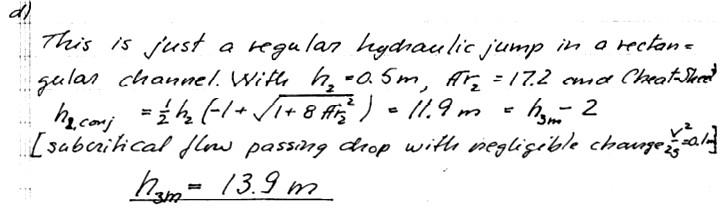 d)
This is just a regular hydraulic jump in a rectan=
gular channel. With h₂ = 0.5m, Fr₂ = 17.2 and Cheat-Sheet
h₂,conj = ½ h₂ (-1 + √(1 + 8 Fr₂²)) = 11.9 m = h₃ₘ - 2
[subcritical flow passing drop with negligible change, V²/2g = 0.1m]
h₃ₘ = 13.9 m